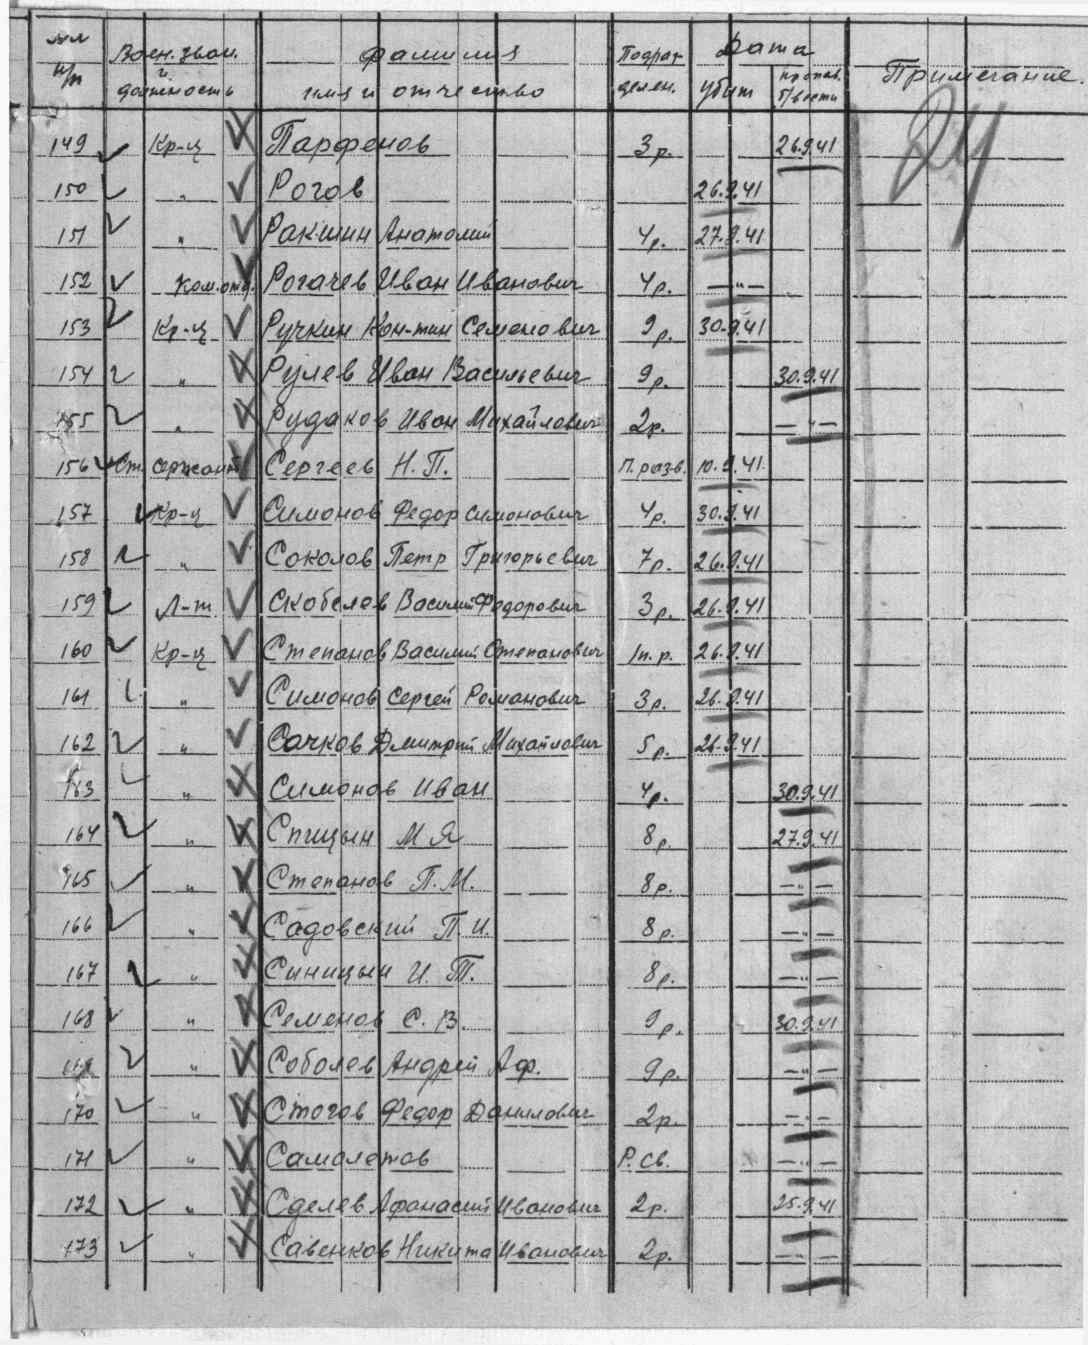 №№ п/п Воен. зван. и должность Фамилия имя и отчество Подраз делен. Дата убит пропав. б/вести Примечание.
149 Кр-ц Парфенов 3 р. 26.9.41
150 " Рогов 26.9.41
151 " Ракшин Анатолий 4 р. 27.9.41
152 Ком. отд. Рогачев Иван Иванович 4 р. — " —
153 Кр-ц Ручкин Кон-тин Семенович 9 р. 30.9.41
154 " Рулев Иван Васильевич 9 р. 30.9.41
155 " Рудаков Иван Михайлович 2 р. — " —
156 Ст. сержант Сергеев Н. П. П. разв. 10.9.41
157 Кр-ц Симонов Федор Симонович 4 р. 30.9.41
158 " Соколов Петр Григорьевич 7 р. 26.9.41
159 Л-т Скобелев Василий Федорович 3 р. 26.9.41
160 Кр-ц Степанов Василий Степанович 1п. р. 26.9.41
161 " Симонов Сергей Романович 3 р. 26.9.41
162 " Сачков Дмитрий Михайлович 5 р. 26.9.41
163 " Симонов Иван 4 р. 30.9.41
164 " Спицын М Я 8 р. 27.9.41
165 " Степанов П. М. 8 р. — " —
166 " Садовский П. И. 8 р. — " —
167 " Синицын И. Т. 8 р. — " —
168 " Семенов С. В. 9 р. 30.9.41
169 " Соболев Андрей Аф. 9 р. — " —
170 " Стогов Федор Данилович 2 р. — " —
171 " Самолетов Р. св. — " —
172 " Сделев Афанасий Иванович 2 р. 25.9.41
173 " Савенков Никита Иванович 2 р. — " —